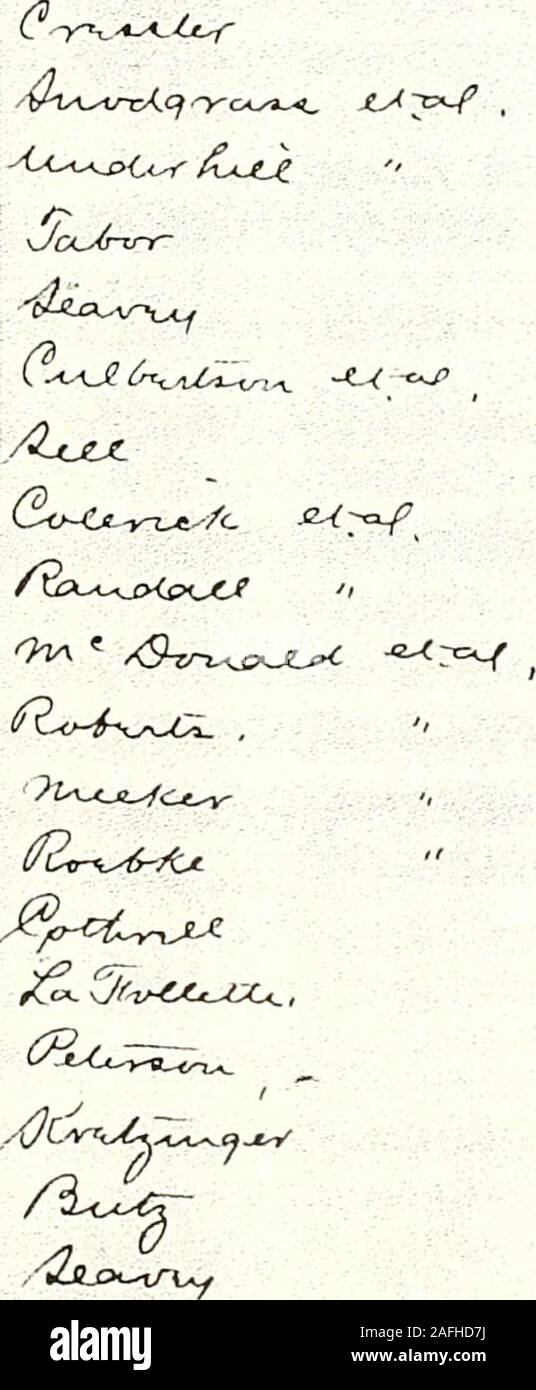 Cressler
Snodgrass et al.
Underhill "
Tabor
Seavey
Culbertson et al,
Sell
Colerick et al.
Randall "
Mc Donald et al,
Roberts. "
Meeker "
Roebke "
Cothrell
La Follette.
Peterson,
Kratzinger
Butz
Seavey
alamy
Image ID: 2AFHD7J
www.alamy.com